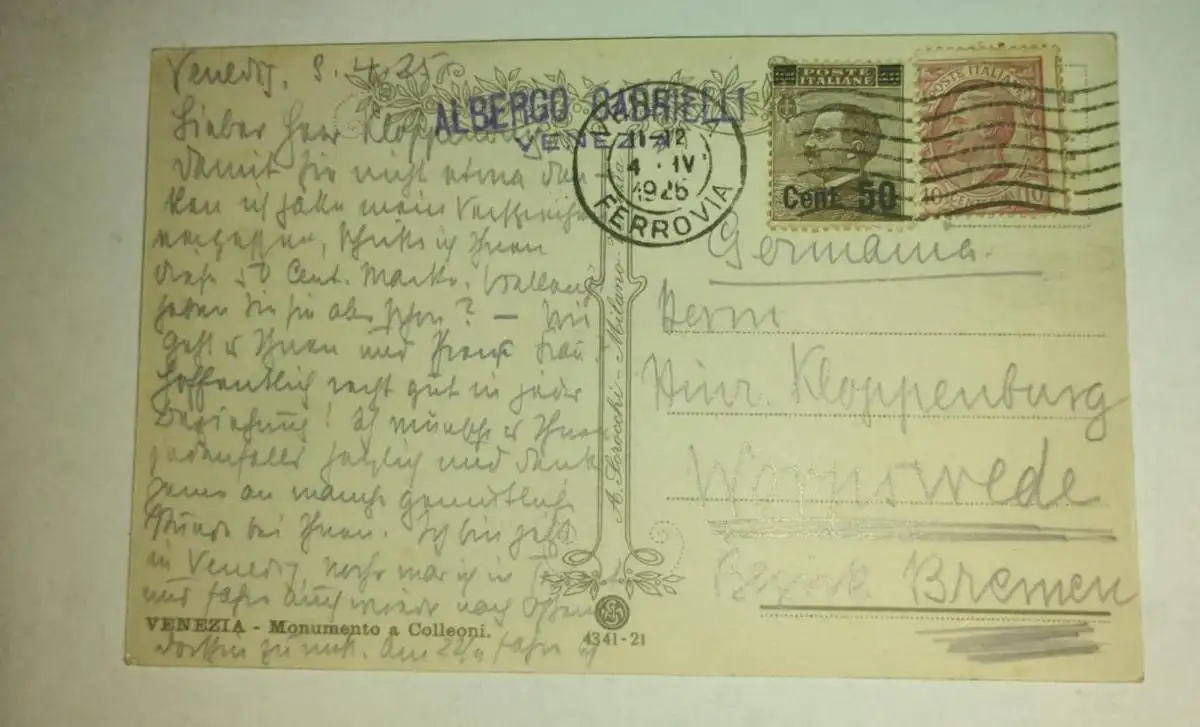 Venedig, 3.4.25
Lieber Herr Kloppenburg
damit Sie nicht etwa den-
ken ich hätte mein Versprechen
vergessen, schicke ich Ihnen
diese 50 Cent. Marke.
haben Sie sie aber schon? – Wie
geht es Ihnen und Ihrer Frau.
Hoffentlich recht gut in jeder
Beziehung! Ich wünsche es Ihnen
jedenfalls herzlich und denke
gerne an manche gemütliche
Stunde bei Ihnen. Ich bin jetzt
in Venedig, vorher war ich in
und fahre auch wieder nach
dorthin zurück. Am fahre ich
ALBERGO GABRIELLI
VENEZIA
11-12
4 · IV
1925
FERROVIA
POSTE
ITALIANE
Cent 50
POSTE ITALIANE
10 CENT 10
Germania.
Herrn
Hinr. Kloppenburg
Worpswede
Bezirk Bremen
A. Scrocchi - Milano
VENEZIA - Monumento a Colleoni.
4341-21